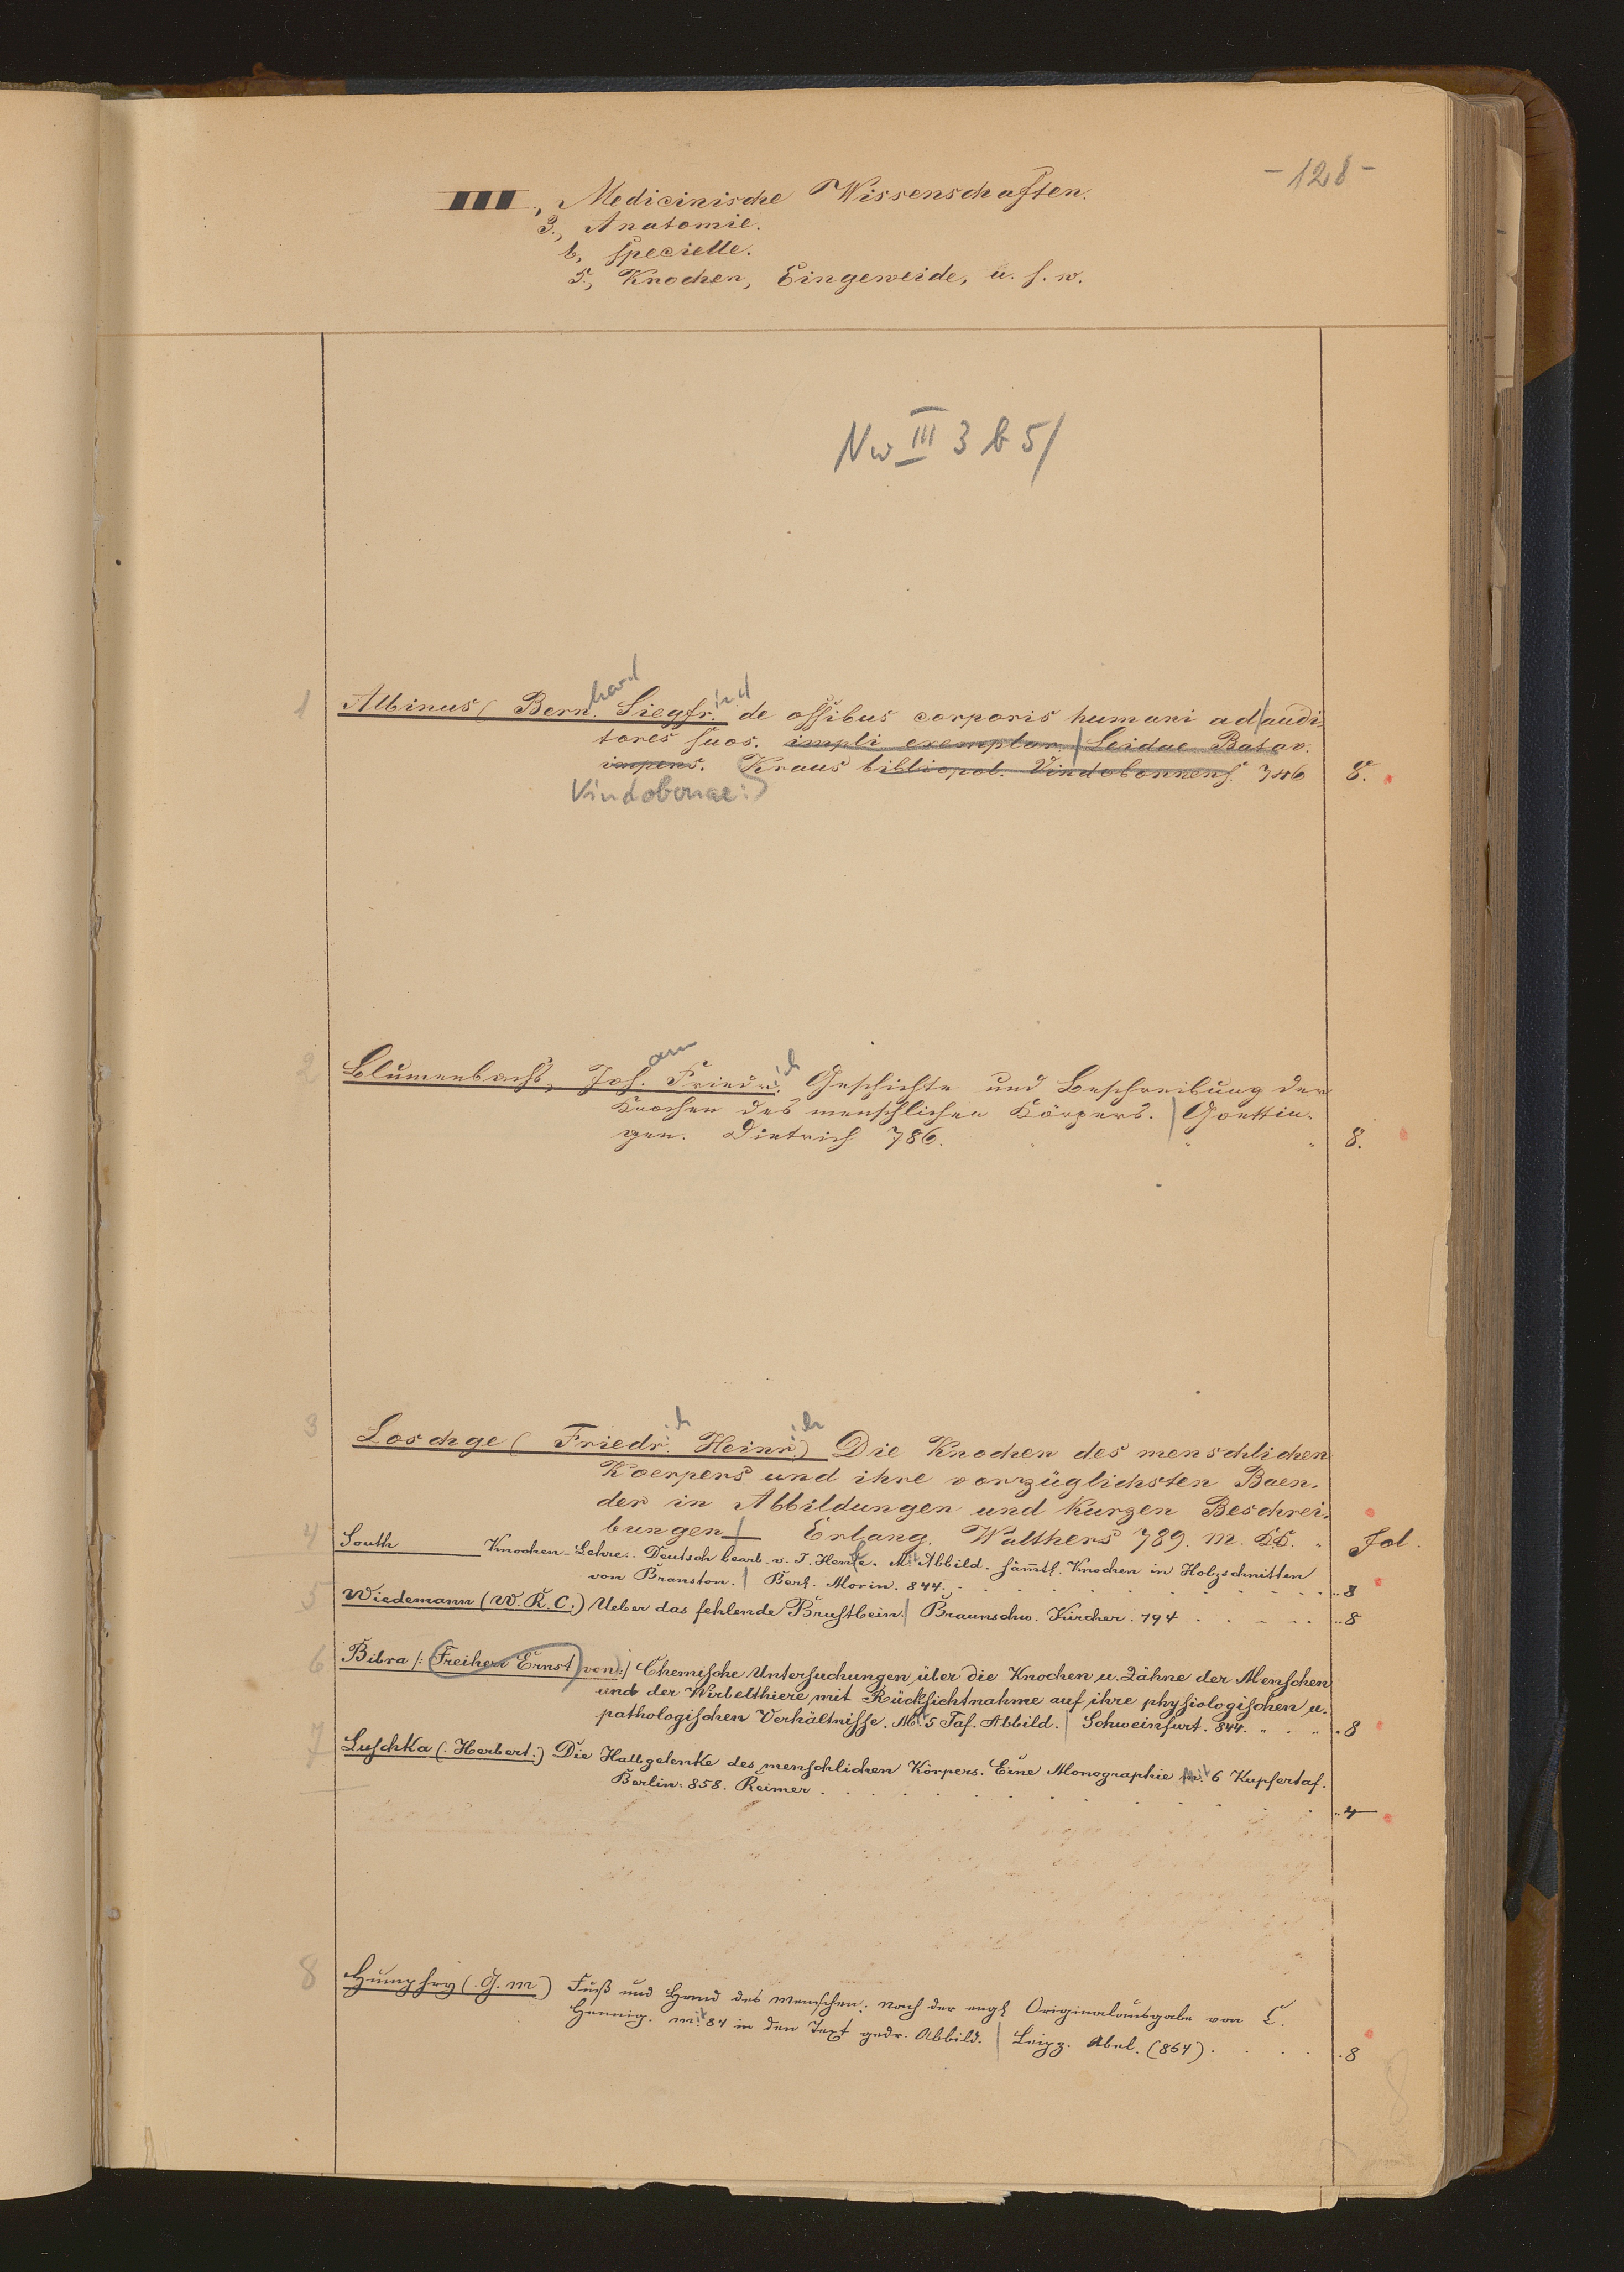 - 128 -
III., Medicinische Wissenschaften.
3., Anatomie.
b, specielle.
5., Knochen, Eingeweide, u. s. w.
Nw III 3 b 5/
1 Albinus (Bern.hard Siegfr.ied de ossibus corporis humani ad/audi-
tores suos. impli exemplar. | Leidae Batav.
impens. Kraus bibliopol. Vindobonnens. 746 8.
Vindobonae:
2 Blumenbachs, Joh.ann Friedr.ich Geschichte und Beschreibung der
Knochen des menschlichen Körpers. | Goettin-
gen. Dietrich 786. " " 8.
3 Loschge (Friedr.ich Heinr.ich) Die Knochen des menschlichen
Koerpers und ihre vorzüglichsten Baen-
der in Abbildungen und kurzen Beschrei-
bungen | Erlang. Walthers 789. m. " Fol.
4 South Knochen-Lehre. Deutsch bearb. v. J. Henle. Mit Abbild. sämtl. Knochen in Holzschnitten
von Branston. | Berl. Morin. 844. 8
5 Wiedemann (W. R. C.) Ueber das fehlende Brustbein. | Braunschw. Kircher. 794 8
6 Bibra /: Freiherr Ernst von :/ Chemische Untersuchungen über die Knochen u. Zähne der Menschen
und der Wirbelthiere, mit Rücksichtnahme auf ihre physiologischen u.
pathologischen Verhältnisse. Mit 5 Taf. Abbild. | Schweinfurt. 844. 8
7 Luschka (. Herbert.) Die Halbgelenke des menschlichen Körpers. Eine Monographie mit 6 Kupfertaf.
Berlin. 858. Reimer 4
8 Humphry (. G. M) Fuß und Hand des Menschen: nach der engl Originalausgabe von C.
Hennig. mit 84 in den Text gedr. Abbild. | Leipz. Abel. (864) 8
8